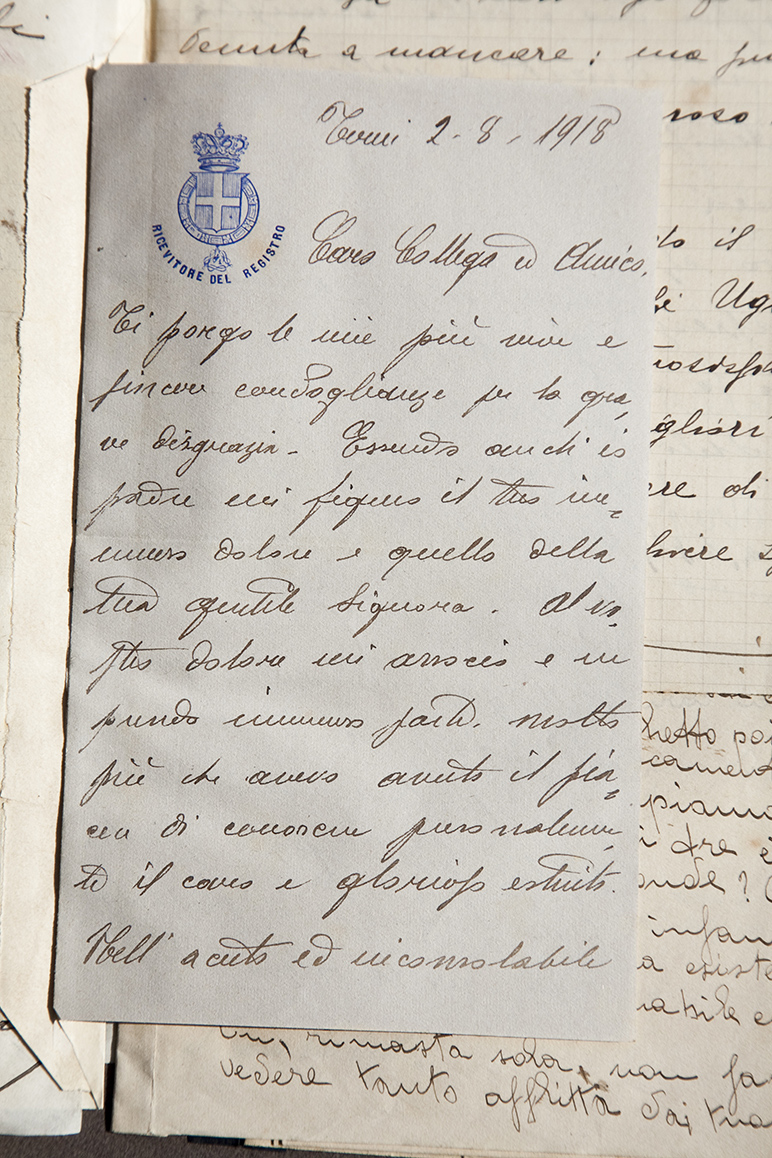 denuta a mancare; ma
Terni 2-8-1918
roso
RICEVITORE DEL REGISTRO
Caro Collega ed Amico,
Ti porgo le mie più vive e
sincere condoglianze per la gra-
ve disgrazia. Essendo anch'io
padre mi figuro il tuo im-
menso dolore e quello della
tua gentile Signora. Al vo-
stro dolore mi associo e vi
prendo immensa parte, molto
più che avevo avuto il pia-
cere di conoscere personalmen-
te il caro e glorioso estinto.
Nell'acuto ed inconsolabile
il
Ugo
gliori
ere di
vere
ghetto
piamo
di dre è
onde?
infam
a esiste
abile e
rimasta sola, non fa
vedere tanto afflitta dai tua